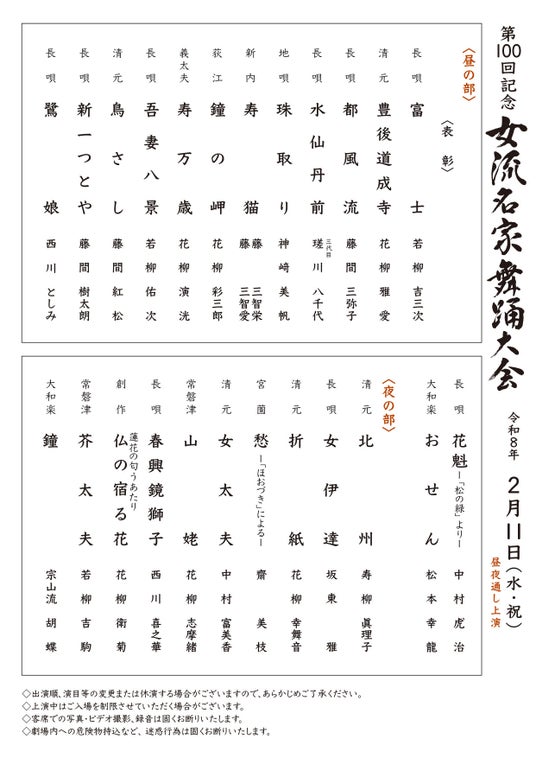 第100回記念
女流名家舞踊大会
令和8年
2月11日(水・祝)
昼夜通し上演
〈昼の部〉
〈表彰〉
長唄 富士 若柳 吉三次
清元 豊後道成寺 花柳 雅愛
長唄 都風流 藤間 三弥子
長唄 水仙丹前 三代目 瑳川 八千代
地唄 珠取り 神﨑 美帆
新内 寿猫 藤 三智栄
藤 三智愛
荻江 鐘の岬 花柳 彩三郎
義太夫 寿万歳 花柳 演洸
長唄 吾妻八景 若柳 佑次
清元 鳥さし 藤間 紅松
長唄 新一つとや 藤間 樹太朗
長唄 鷺娘 西川 としみ
長唄 花魁―「松の緑」より― 中村 虎治
大和楽 おせん 松本 幸龍
〈夜の部〉
清元 北州 寿柳 眞理子
長唄 女伊達 坂東 雅
清元 折紙 花柳 幸舞音
宮薗 愁―「ほおづき」による― 齋 美枝
清元 女太夫 中村 富美香
常磐津 山姥 花柳 志摩緒
長唄 春興鏡獅子 西川 喜之華
創作 蓮花の匂うあたり
仏の宿る花 花柳 衛菊
常磐津 芥太夫 若柳 吉駒
大和楽 鐘 宗山流 胡蝶
◇出演順、演目等の変更または休演する場合がございますので、あらかじめご了承ください。
◇上演中はご入場を制限させていただく場合がございます。
◇客席での写真・ビデオ撮影、録音は固くお断りいたします。
◇劇場内への危険物持込など、迷惑行為は固くお断りいたします。